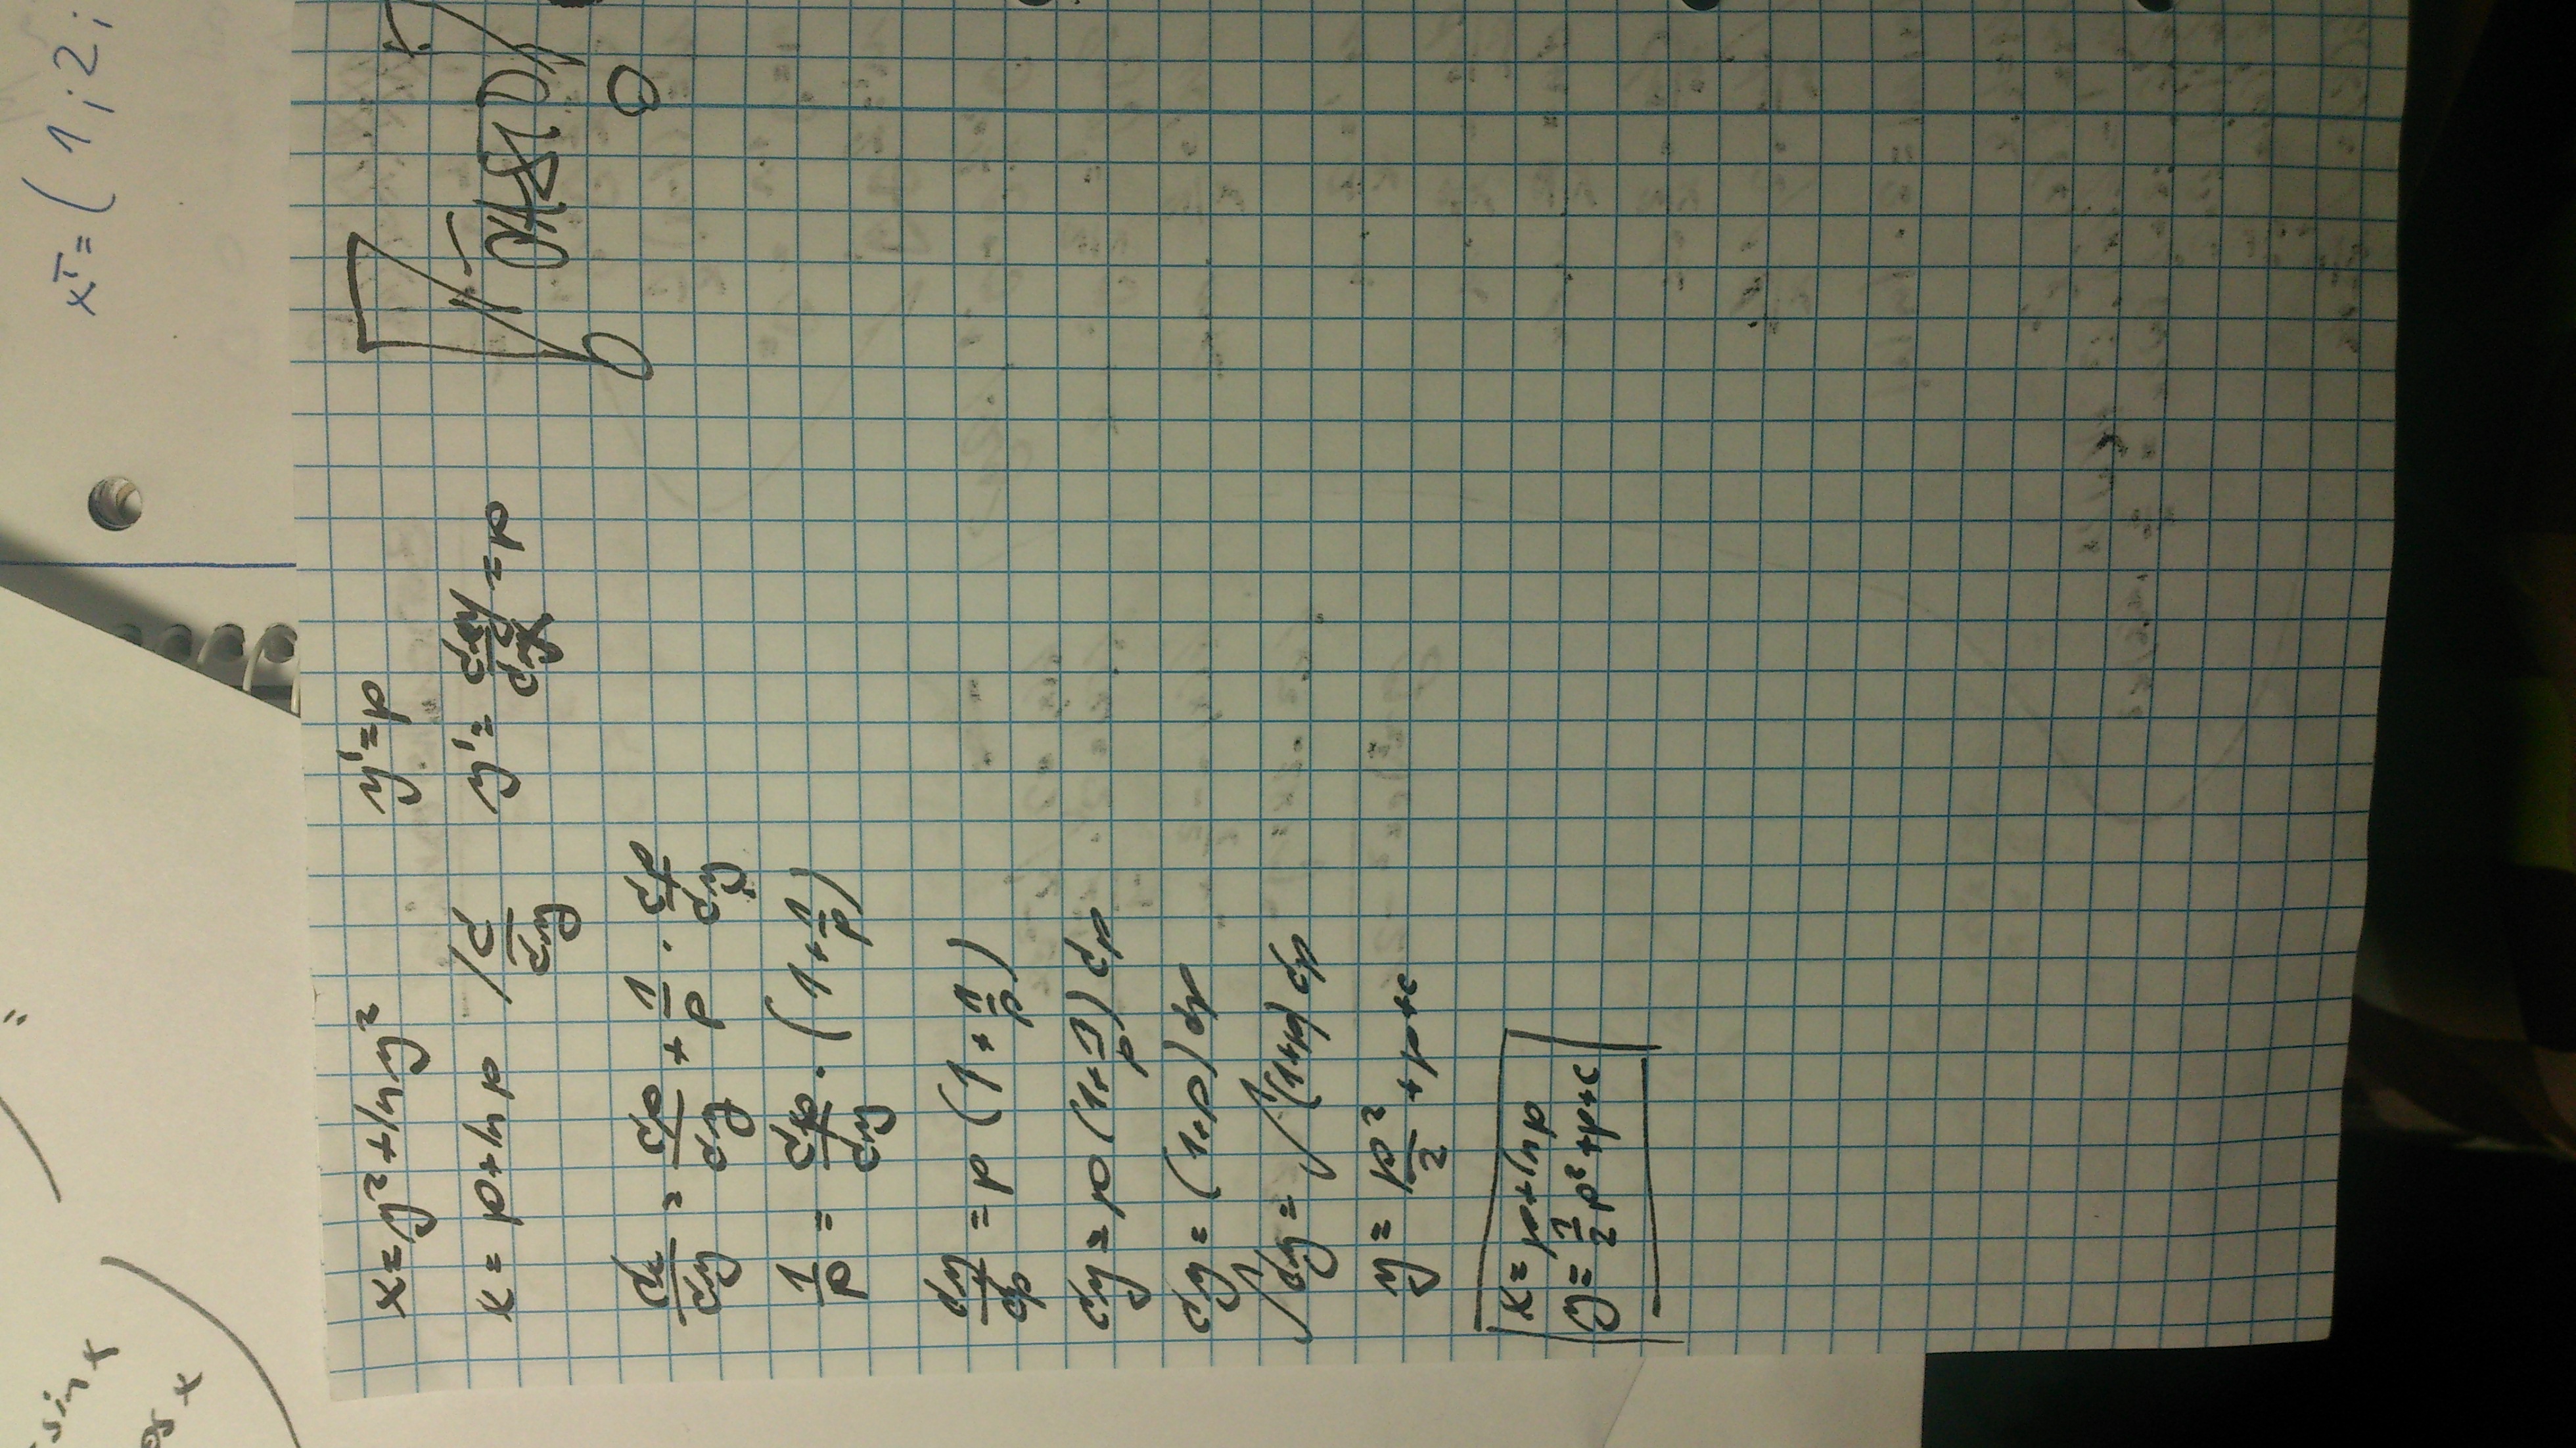 sin x
os x
=
xᵀ = ( 1 ; 2 ;
x = y² + ln y²    y' = p
x = p + ln p  / d/dy    y' = dy/dx = p
dx/dy = dp/dy + 1/p · dp/dy
1/p = dp/dy · (1 + 1/p)
dy/dp = p (1 + 1/p)
dy = p (1 + 1/p) dp
dy = (1+p) dp
∫dy = ∫(1+p) dp
y = p²/2 + p + c
x = p + ln p
y = 1/2 p² + p + c